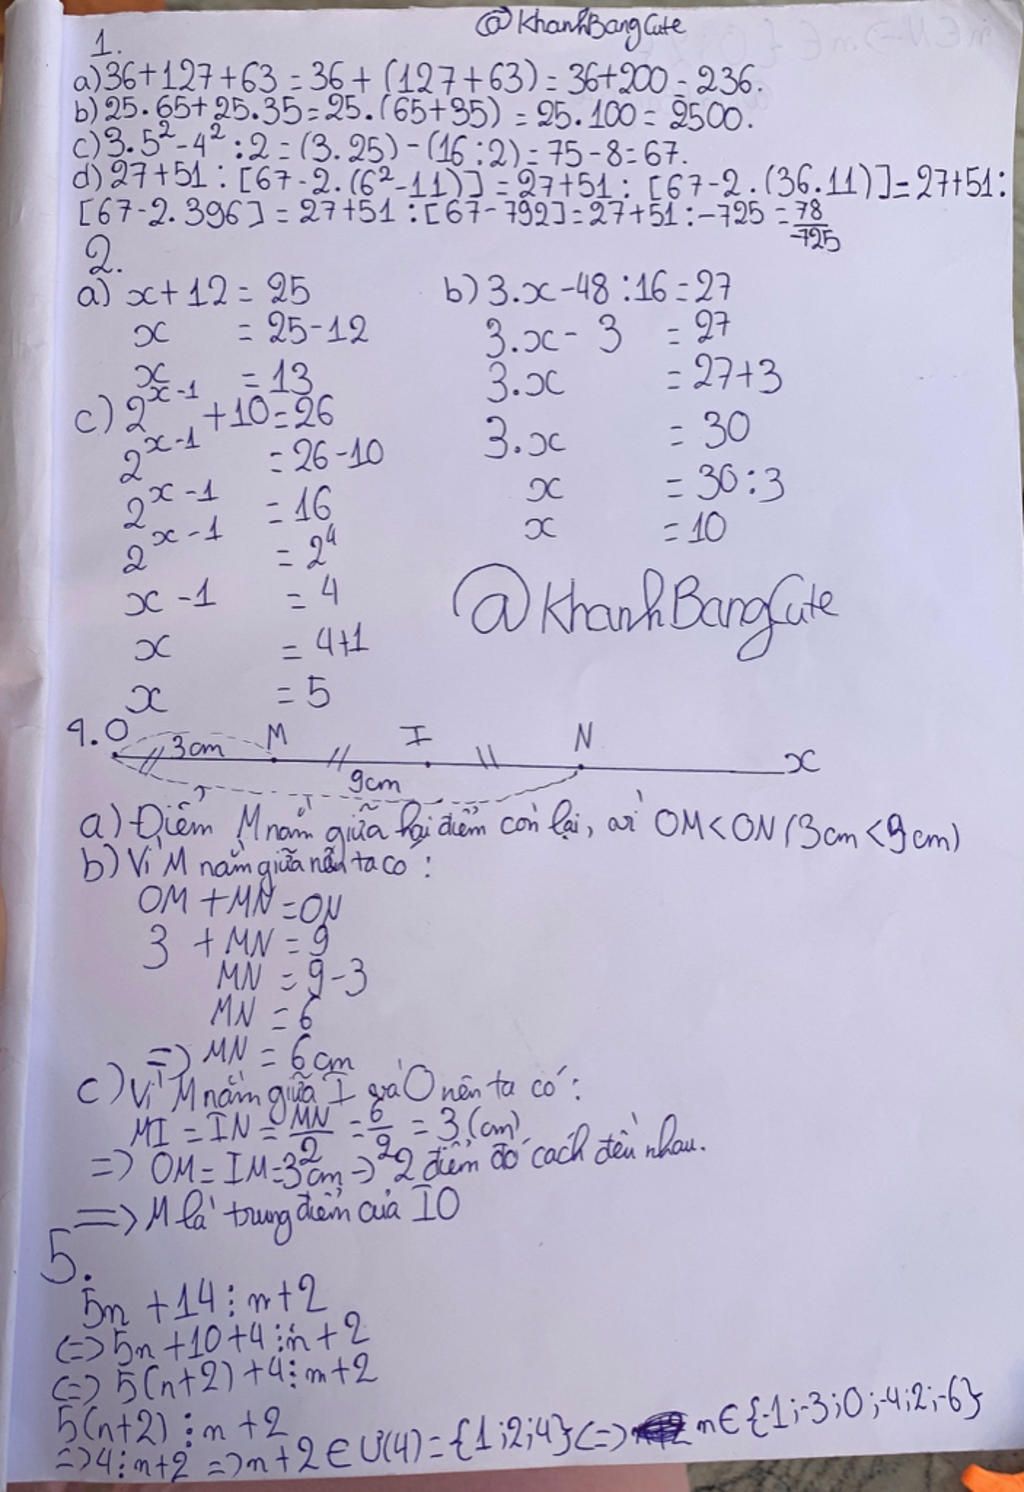 @KhanhBangCute
1.
a) 36+127+63 = 36 + (127+63) = 36+200 = 236.
b) 25.65+25.35 = 25.(65+35) = 25.100 = 2500.
c) 3.5² - 4² : 2 = (3.25) - (16:2) = 75-8 = 67.
d) 27+51 : [67-2.(6²-11)] = 27+51 : [67-2.(36.11)] = 27+51 :
[67-2.396] = 27+51 : [67-792] = 27+51 : -725 = 78/-725
2.
a) x+12 = 25
x = 25-12
x = 13
b) 3.x-48:16 = 27
3.x - 3 = 27
3.x = 27+3
3.x = 30
x = 30:3
x = 10
c) 2^(x-1) +10 = 26
2^(x-1) = 26-10
2^(x-1) = 16
2^(x-1) = 2⁴
x-1 = 4
x = 4+1
x = 5
@KhanhBangCute
4. O 3cm M I N x
9cm
a) Điểm M nằm giữa hai điểm còn lại, vì OM<ON (3cm<9cm)
b) Vì M nằm giữa nên ta có:
OM + MN = ON
3 + MN = 9
MN = 9-3
MN = 6
=> MN = 6cm
c) Vì M nằm giữa I và O nên ta có:
MI = IN = MN/2 = 6/2 = 3 (cm)
=> OM = IM = 3cm => 2 điểm đó cách đều nhau.
=> M là trung điểm của IO
5.
5n +14 ⋮ n+2
<=> 5n+10+4 ⋮ n+2
<=> 5(n+2)+4 ⋮ n+2
5(n+2) ⋮ n+2
=> 4 ⋮ n+2 => n+2 ∈ Ư(4) = {1;2;4} <=> n ∈ {-1;-3;0;-4;2;-6}